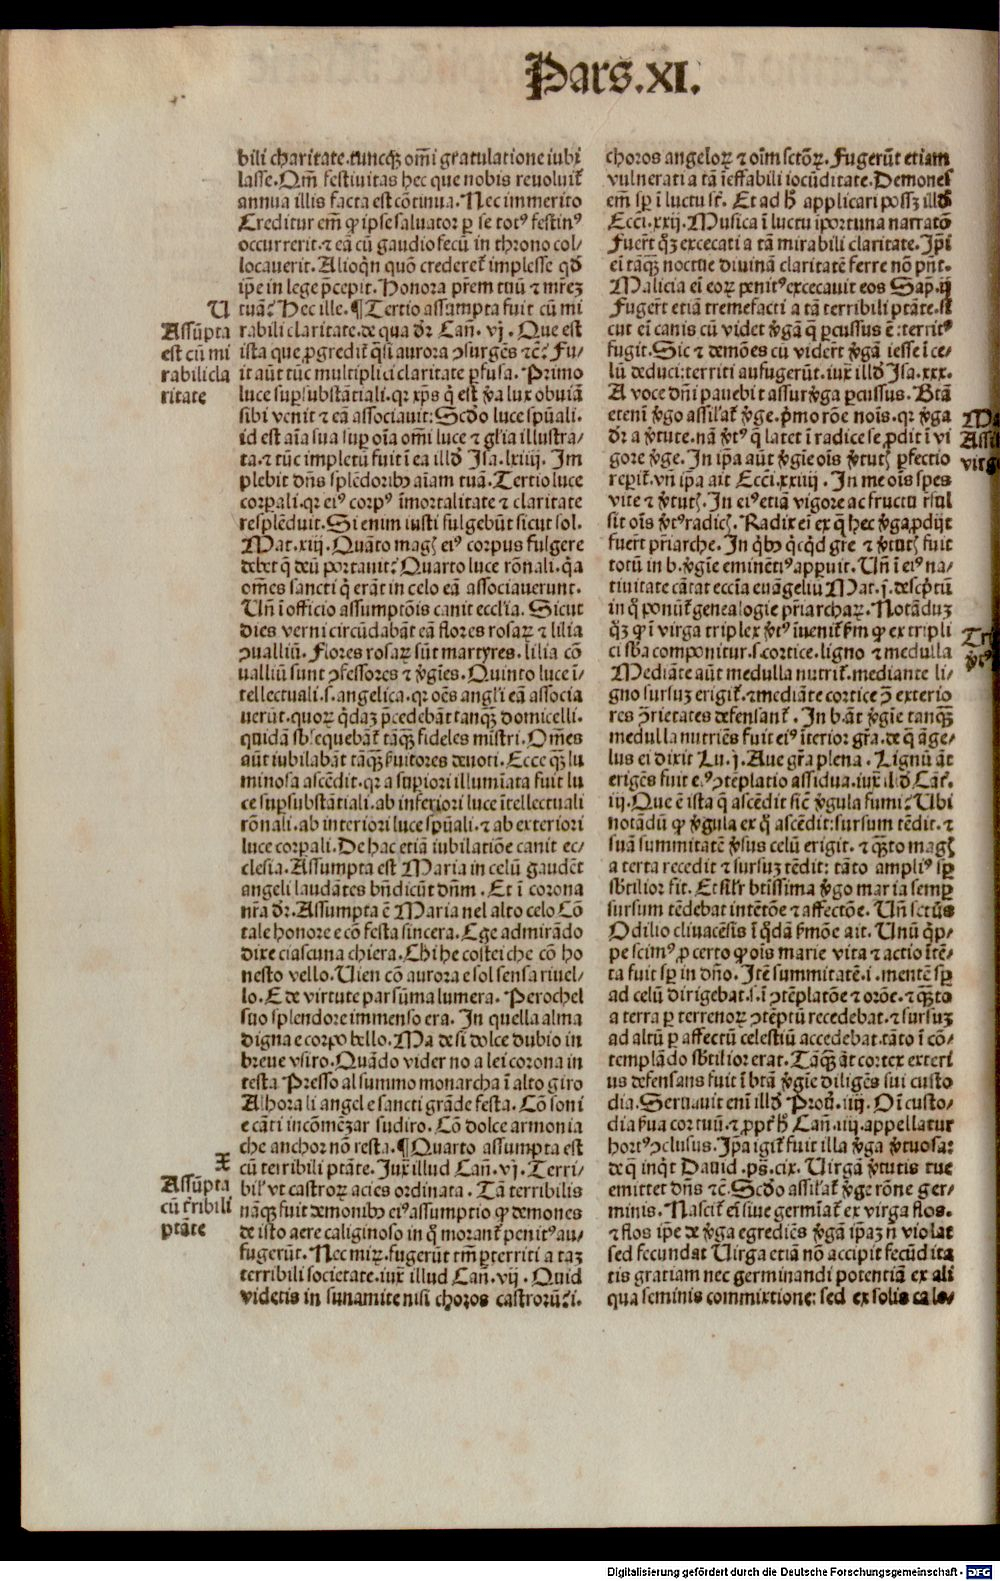 Pars.XI.
bili charitate.tuncqꝫ om̄i gratulatione iubi
lasse. Qm̄ festiuitas hec que nobis reuoluit̄
annua illis facta est cōtinua. Nec immerito
Creditur em̄ ꝙ ipse saluator ꝑ se totꝰ festinꝰ
occurrerit.⁊ eā cū gaudio secū in throno col⸗
locauerit. Alioqn̄ quō crederet̄ implesse qđ
ip̄e in lege p̄cepit. Honora pr̄em tuū ⁊ mr̄eꝫ
tuā: Hec ille. ¶ Tertio assumpta fuit cū mi
rabili claritate.de qua dr̄ Cañ. vj. Que est
ista que ꝓgredit̄ q̄si aurora ɔsurgēs ⁊c̄: Fu⸗
it aūt tūc multiplici claritate ꝑfusa. Primo
luce suꝑsubstātiali.qꝛ xp̄s q̄ est ꝟa lux obuiā
sibi venit ⁊ eā associauit: Scđo luce spūali.
id est aīa sua suꝑ oīa om̄i luce ⁊ gl̄ia illustra⸗
ta.⁊ tūc impletū fuit ī ea illđ Isa.lxiiij. Im
plebit dn̄s splēdoribꝰ aīam tuā. Tertio luce
corꝑali.qꝛ eiꝰ corpꝰ īmortalitate ⁊ claritate
resplēduit. Si enim iusti fulgebūt sicut sol.
Mat.xiij. Quāto magꝭ eiꝰ corpus fulgere
debet q̄ deū portauit: Quarto luce rōnali.q̄a
om̄es sancti q̄ erāt in celo eā associauerunt.
Uñ ī officio assumptōis canit eccl̄ia. Sicut
dies verni circūdabāt eā flores rosaꝝ ⁊ lilia
ɔualliū. Flores rosaꝝ sūt martyres.lilia cō
ualliū sunt ɔfessores ⁊ ꝟgīes. Quinto luce ī⸗
tellectuali.s.angelica.qꝛ oēs angl̄i eā associa
uerūt.quoꝝ q̄daꝫ p̄cedebāt tanqꝫ domicelli.
quidā sb̄sequebāt̄ tāqꝫ fideles mīstri. Om̄es
aūt iubilabāt tāqꝫ ẜuitores deuoti. Ecce qꝫ lu
minosa ascēdit.qꝛ a suꝑiori illumīata fuit lu
ce suꝑsubstātiali.ab inferiori luce ītellectuali
rōnali.ab interiori luce spūali.⁊ ab exteriori
luce corꝑali. De hac etiā iubilatiōe canit ec⸗
clesia. Assumpta est Maria in celū gaudēt
angeli laudātes bn̄dicūt dn̄m. Et ī corona
nr̄a dr̄. Assumpta ē Maria nel alto celo Cō
tale honore e cō festa sincera. Ege admirādo
dixe ciascuna chiera. Chi he costei che cō ho
nesto vello. Uien cō aurora e sol sensa riuel⸗
lo. E de virtute par sūma lumera. Perochel
suo splendore immenso era. In quella alma
digna e corpo bello. Ma de si dolce dubio in
breue vsiro. Quādo vider no a lei corona in
testa Presso al summo monarcha ī alto giro
Alhora li angel e sancti grāde festa. Cō soni
e cāti incōmēzar sudiro. Cō dolce armonia
che anchor nō resta. ¶ Quarto assumpta est
cū terribili ptāte. Iux̄ illud Cañ. vj. Terri⸗
bil̄ vt castroꝝ acies ordinata. Tā terribilis
nāqꝫ fuit demonibꝰ eiꝰ assumptio ꝙ demones
de isto aere caliginoso in q̊ morant̄ penitꝰ au⸗
fugerūt. Nec miꝝ.fugerūt tm̄ ꝑterriti a taꝫ
terribili societate.iux̄ illud Cañ. vij. Quid
videtis in sunamite nisi choros castrorū:.i.
U
Assūpta
est cū mi
rabili cla
ritate
X
Assūpta
cū t̄ribili
ptāte
choros angeloꝝ ⁊ oīm sctōꝝ. Fugerūt etiam
vulnerati a tā īeffabili iocūditate. Demones
em̄ sꝑ ī luctu st̄. Et ad h̄ applicari possꝫ illđ
Ecci.xxij. Musica ī luctu īportuna narratō
Fuer̄t qꝫ excecati a tā mirabili claritate. Ip̄i
ei tāqꝫ noctue diuinā claritatē ferre nō pn̄t.
Malicia ei eoꝝ penitꝰ excecauit eos Sap.ij
Fuger̄t etiā tremefacti a tā terribili ptāte.si
cut ei canis cū videt ꝟgā q̄ ꝑcussus ē: territꝰ
fugit. Sic ⁊ demōes cū vider̄t ꝟgā iesse ī ce⸗
lū deduci:territi aufugerūt.iux̄ illđ Isa.xxx.
A voce dn̄i pauebit assur ꝟga ꝑcussus. Btā
etenī ꝟgo assil̄at̄ ꝟge.p̄mo rōe noīs.qꝛ ꝟga
dr̄ a ꝟtute.nā ꝟtꝰ q̄ latet ī radice se ꝓdit ī vi
gore ꝟge. In ip̄a aūt ꝟgīe oīs ꝟtutꝭ ꝑfectio
reꝑit̄.vñ ip̄a ait Ecci.xxiiij. In me oīs spes
vite ⁊ ꝟtutꝭ. In eiꝰ etiā vigore ac fructu r̄sul
sit oīs ꝟtꝰ radicꝭ. Radix ei ex q̄ hec ꝟga ꝓdijt
fuer̄t pr̄iarche. In q̄bꝰ q̄cq̄d gr̄e ⁊ ꝟtutꝭ fuit
totū in b.ꝟgīe eminētiꝰ apꝑuit. Uñ ī eiꝰ na⸗
tiuitate cātat eccīa euāgeliū Mat.j.descp̄tū
in q̊ ponūt̄ genealogie pr̄iarchaꝝ. Notāduꝫ
qꝫ ꝙ ī virga triplex ꝟtꝰ īuenit̄ ẜm ꝙ ex tripli
ci sb̄a componitur.s.cortice.ligno ⁊ medulla
Mediāte aūt medulla nutrit̄.mediante li⸗
gno sursuꝫ erigit̄.⁊ mediāte cortice ɔ̄ exterio
res ɔ̄rietates defensant̄. In b.āt ꝟgīe tanqꝫ
medulla nutriēs fuit eiꝰ īterior gr̄a.de q̄ āge⸗
lus ei dixit Lu.j. Aue gr̄a plena. Lignū āt
erigēs fuit eiꝰ ɔtēplatio assidua.iux̄ illđ Cāt̄.
iij. Que ē ista q̄ ascēdit sic̄ ꝟgula fumi: Ubi
notādū ꝙ ꝟgula ex q̊ ascēdit:sursum tēdit.⁊
suā summitatē ꝟsus celū erigit.⁊ qꝫto magꝭ
a terra recedit ⁊ sursuꝫ tēdit: tāto ampliꝰ sꝑ
sb̄tilior fit. Et sil̄r btīssima ꝟgo maria semꝑ
sursum tēdebat intētōe ⁊ affectōe. Uñ sctūs
Odilio cluacēsis ī q̊dā ẜmōe ait. Unū q̄ꝑ⸗
pe scimꝰ ꝓ certo ꝙ oīs marie vita ⁊ actio ītē⸗
ta fuit sꝑ in dn̄o. Itē summitatē.i.mentē sꝑ
ad celū dirigebat.s.ī ɔtēplatōe ⁊ orōe.⁊ qꝫto
a terra ꝑ terrenoꝝ ɔtēptū recedebat.⁊ sursuꝫ
ad altū ꝑ affectū celestiū accedebat.tāto ī cō⸗
templādo sb̄tilior erat. Tāqꝫ āt cortex exteri
us defensans fuit ī btā ꝟgīe diligēs sui custo
dia. Seruauit enī illđ Prou̇.iiij. Oī custo⸗
dia ẜua cor tuū.⁊ ꝓpt̄ h̄ Cañ.iiij.appellatur
hortꝰ ɔclusus. Ip̄a igit̄ fuit illa ꝟga ꝟtuosa:
de q̄ inq̄t Dauid.ps̄.cix. Uirgā ꝟtutis tue
emittet dn̄s ⁊c̄. Scđo assil̄at̄ ꝟge rōne ger⸗
minis. Nascit̄ ei siue germīat̄ ex virga flos.
⁊ flos ip̄e de ꝟga egrediēs ꝟgā ip̄aꝫ n̄ violat
sed fecundat Uirga etiā nō accipit fecūdita
tis gratiam nec germinandi potentiā ex ali
qua seminis commixtione: sed ex solis calo⸗
Digitalisierung gefördert durch die Deutsche Forschungsgemeinschaft - DFG